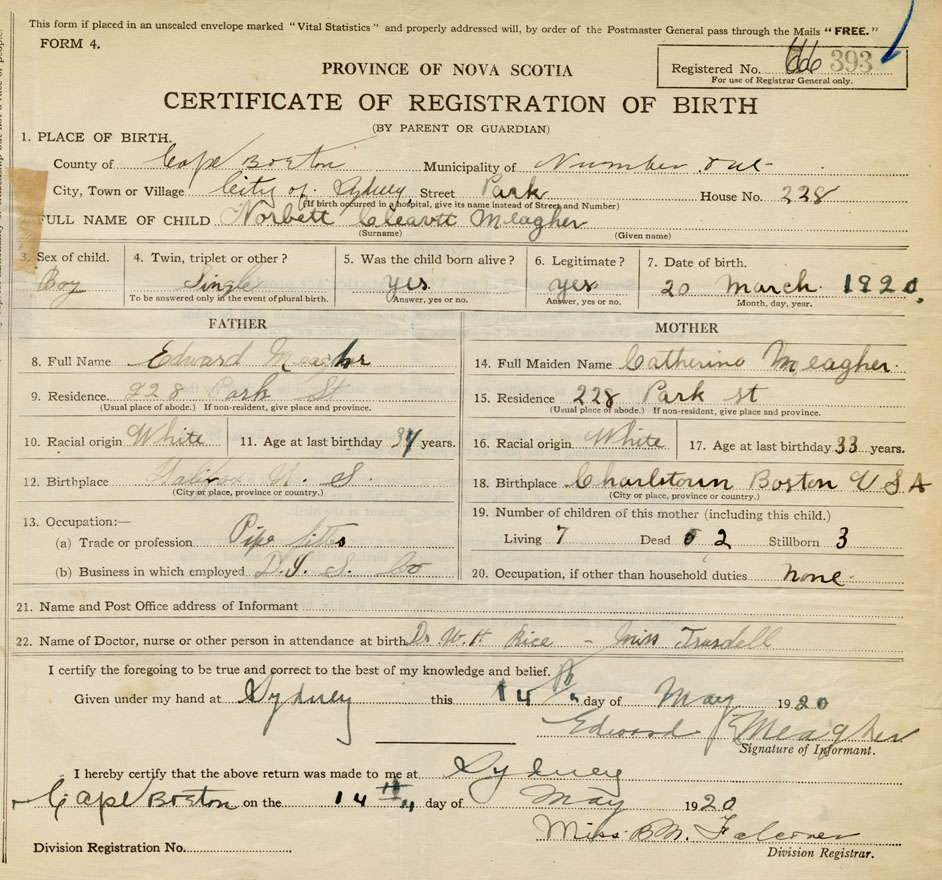 This form if placed in an unsealed envelope marked "Vital Statistics" and properly addressed will, by order of the Postmaster General pass through the Mails "FREE."
FORM 4.
Registered No. 393
For use of Registrar General only.
PROVINCE OF NOVA SCOTIA
CERTIFICATE OF REGISTRATION OF BIRTH
(BY PARENT OR GUARDIAN)
1. PLACE OF BIRTH.
County of Cape Breton Municipality of Number one
City, Town or Village City of Sydney Street Park House No. 228
(If birth occurred in a hospital, give its name instead of Street and Number)
FULL NAME OF CHILD Norbett Cleavett Meagher
(Surname) (Given name)
3. Sex of child. 4. Twin, triplet or other? 5. Was the child born alive? 6. Legitimate? 7. Date of birth.
Boy Single yes yes 20 March 1920.
To be answered only in the event of plural birth. Answer, yes or no. Answer, yes or no. Month, day, year.
FATHER MOTHER
8. Full Name Edward Meagher 14. Full Maiden Name Catherine Meagher
9. Residence. 228 Park St 15. Residence 228 Park st
(Usual place of abode.) If non-resident, give place and province. (Usual place of abode.) If non-resident, give place and province.
10. Racial origin White 11. Age at last birthday 34 years. 16. Racial origin White 17. Age at last birthday 33 years.
12. Birthplace N. S. 18. Birthplace Charlstown Boston U S A
(City or place, province or country.) (City or place, province or country.)
13. Occupation:— 19. Number of children of this mother (including this child.)
(a) Trade or profession. Pipe Living 7 Dead 2 Stillborn 3
(b) Business in which employed D. I. S. Co 20. Occupation, if other than household duties none.
21. Name and Post Office address of Informant
22. Name of Doctor, nurse or other person in attendance at birth Dr W. H Rice - Miss Trusdell
I certify the foregoing to be true and correct to the best of my knowledge and belief.
Given under my hand at Sydney this 14th day of May 1920
Edward Meagher
Signature of Informant.
I hereby certify that the above return was made to me at Sydney
Cape Breton on the 14th day of May 1920
Miss B M. Falconer
Division Registration No. Division Registrar.